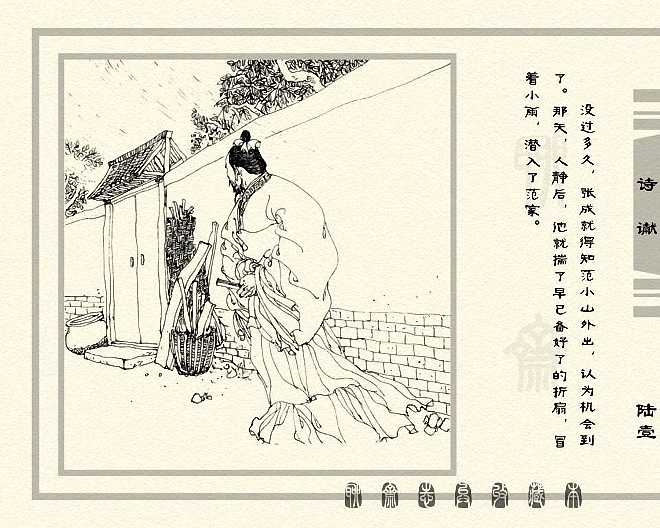 没过多久，张成就得知范小山外出，认为机会到
了。那天，人静后，他就揣了早已备好了的折扇，冒
着小雨，潜入了范家。
诗谳
陆壹
聊斋志异收藏本